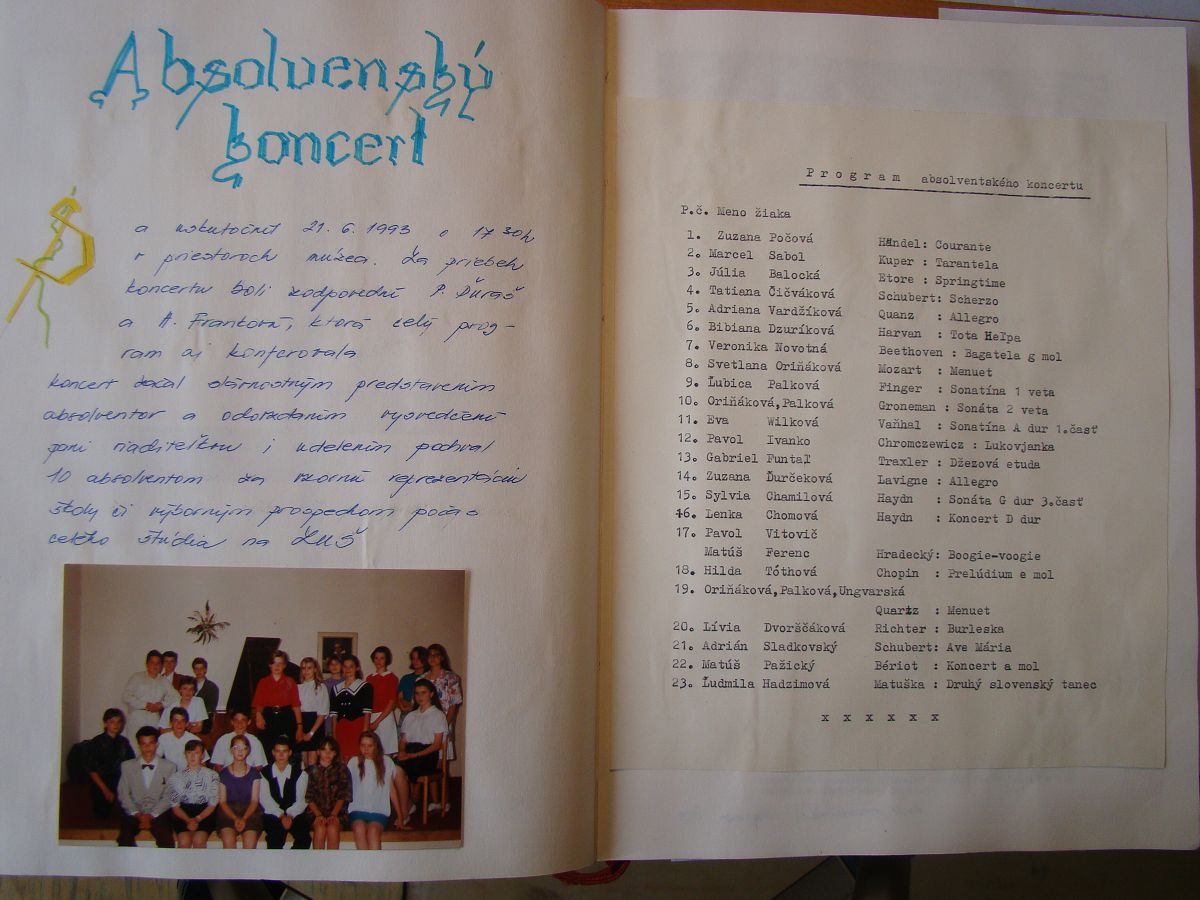 Absolvenský
koncert
a uskutočnil 21. 6. 1993 o 17 30h
v priestoroch múzea. Za priebeh
koncertu boli zodpovední P. Ďuraš
a A. Franková, ktorá celý prog-
ram aj konferovala
koncert začal slávnostným predstavením
absolventov a odovzdaním vysvedčení
pani riaditeľkou i udelením pochval
10 absolventom za vzornú reprezentáciu
školy či výborným prospechom počas
celého štúdia na ĽUŠ
Program absolventského koncertu
P.č. Meno žiaka
1. Zuzana Počová Händel: Courante
2. Marcel Sabol Kuper : Tarantela
3. Júlia Balocká Etore : Springtime
4. Tatiana Čičváková Schubert: Scherzo
5. Adriana Vardžíková Quanz : Allegro
6. Bibiana Dzuríková Harvan : Tota Heľpa
7. Veronika Novotná Beethoven : Bagatela g mol
8. Svetlana Oriňáková Mozart : Menuet
9. Ľubica Palková Finger : Sonatína 1 veta
10. Oriňáková,Palková Groneman : Sonáta 2 veta
11. Eva Wilková Vaňhal : Sonatína A dur 1.časť
12. Pavol Ivanko Chromczewicz : Lukovjanka
13. Gabriel Funtaľ Traxler : Džezová etuda
14. Zuzana Ďurčeková Lavigne : Allegro
15. Sylvia Chamilová Haydn : Sonáta G dur 3.časť
16. Lenka Chomová Haydn : Koncert D dur
17. Pavol Vitovič
Matúš Ferenc Hradecký: Boogie-voogie
18. Hilda Tóthová Chopin : Prelúdium e mol
19. Oriňáková,Palková,Ungvarská
Quartz : Menuet
20. Lívia Dvorščáková Richter : Burleska
21. Adrián Sladkovský Schubert: Ave Mária
22. Matúš Pažický Bériot : Koncert a mol
23. Ľudmila Hadzimová Matuška : Druhý slovenský tanec
x x x x x x